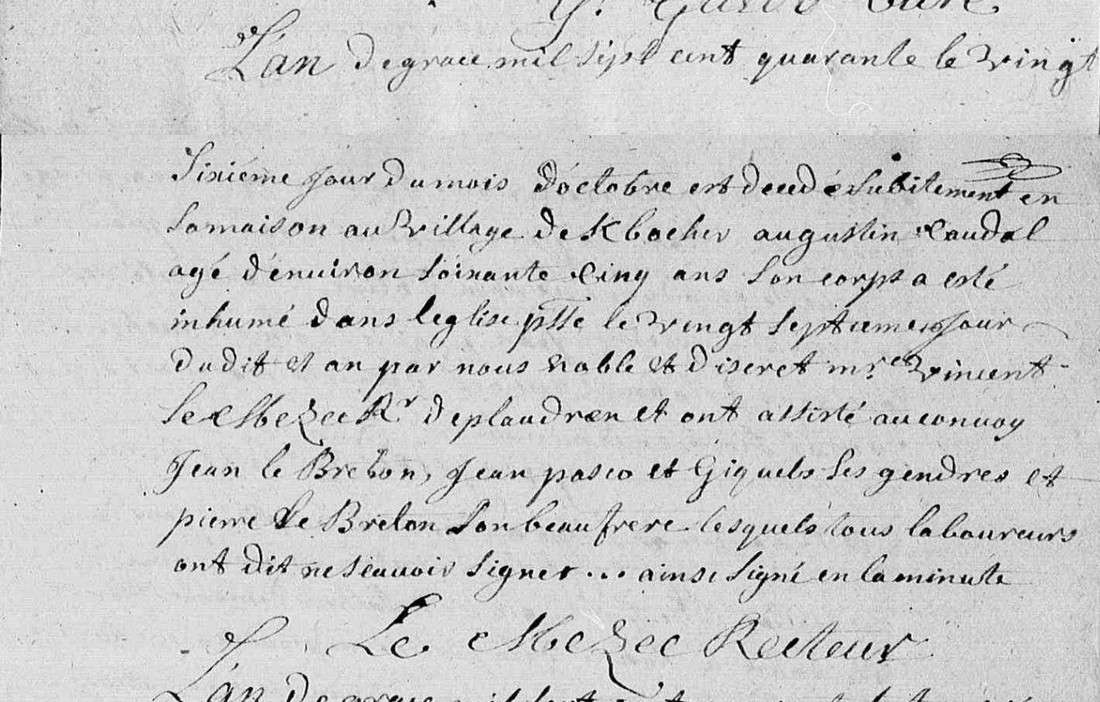 Curé
L'an de grace mil sept cent quarante le vingt
sixiéme jour du mois d'octobre est decedé subitement en
sa maison au village de Kbocher augustin Caudal
agé d'environ soixante cinq ans son corps a esté
inhumé dans leglise psse le vingt septieme jour
dudit et an par nous noble et discret mre vincent
le Mezec Rr deplaudren et ont assisté auconvoy
Jean le Breton, Jean pasco et Giquels ses gendres et
pierre Le Breton son beaufrere lesquels tous laboureurs
ont dit ne scauoir signer ... ainsi signé en la minute
Le Mezec Recteur
L'an de grace mil sept cent